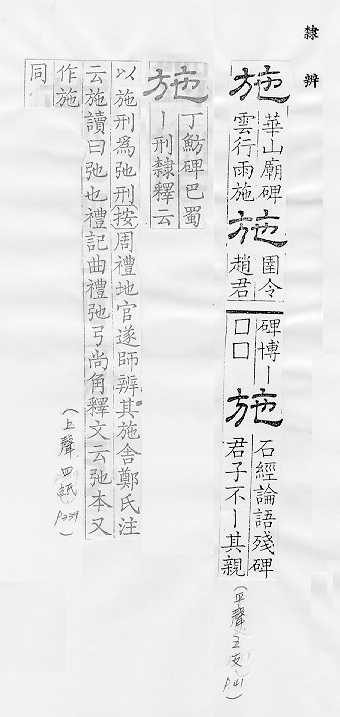 隸辨
施
華山廟碑
雲行雨施
施
圉令
趙君
碑博｜
□□
施
石經論語殘碑
君子不｜其親
(平聲五支 P.41)
施
丁魴碑巴蜀
｜刑隸釋云
以施刑爲弛刑按周禮地官遂師辨其施舍鄭氏注
云施讀曰弛也禮記曲禮弛弓尚角釋文云弛本又
作施
同
(上聲四紙 P.339)